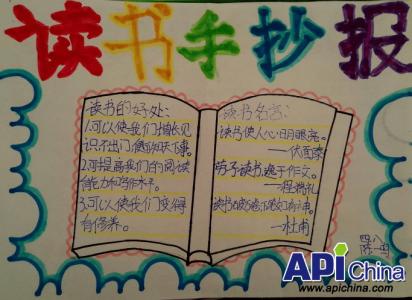 读书手抄报
读书的好处:
1.可以使我们增长见
识不出门
2.可提高我们的阅读
能力和写作水平。
3.可以使我们变得
有修养。
读书名言:
读书使人心明眼亮。
——伏尔泰
劳于读书,逸于作文。
——程端礼
——杜甫
API China
www.apichina.com